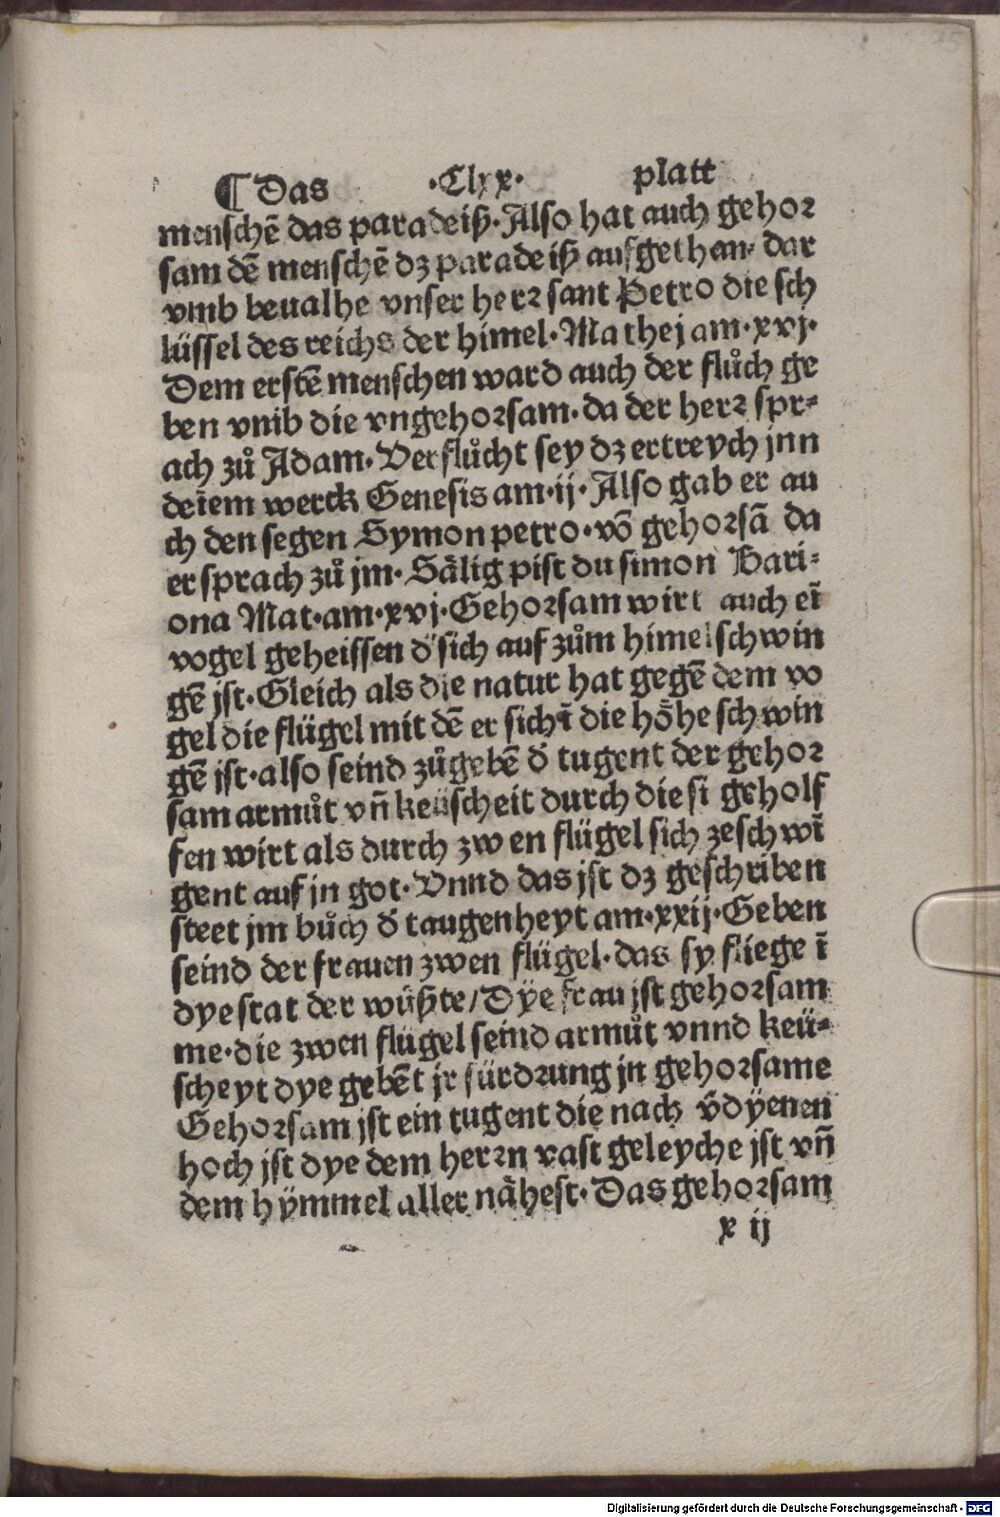 ¶ Das ·Clxx· platt
menschē das paradeiß·Also hat auch gehor
sam dē menschē dz paradeiß aufgethan· dar
vmb beualhe vnser herr sant Petro die sch
lüssel des reichs der himel·Mathej am·xvj·
Dem erstē menschen ward auch der flůch ge
ben vmb die vngehorsam·da der herr spr⸗
ach zů Adam·Verflůcht sey dz ertreych jnn
deīem werck Genesis am·ij·Also gab er au
ch den segen Symon petro·vō gehorsā da
er sprach zů jm·Sålig pist du simon Bari⸗
ona Mat·am·xvj·Gehorsam wirt auch eī
vogel geheissen d̓ sich auf zům himel schwin
gē jst·Gleich als die natur hat gegē dem vo
gel die flügel mit dē er sich ī die hőhe schwin
gē jst·also seind zůgebē d̓ tugent der gehor
sam armůt vn̄ keüscheit durch die si geholf
fen wirt als durch zwen flügel sich ze schwī
gent auf in got·Vnnd das jst dz geschriben
steet jm bůch d̓ taugenheyt am·xxij·Geben
seind der frauen zwen flügel·das sy fliege ī
dye stat der wüßte/Dÿe frau jst gehorsam
me·die zwen flügel seind armůt vnnd keü⸗
scheyt dye gebēt jr fürdrung jn gehorsame
Gehorsam jst ein tugent die nach v̄dÿenen
hoch jst dye dem herrn vast geleyche jst vn̄
dem hÿmmel aller nåhest·Das gehorsam
x ij
Digitalisierung gefördert durch die Deutsche Forschungsgemeinschaft · DFG